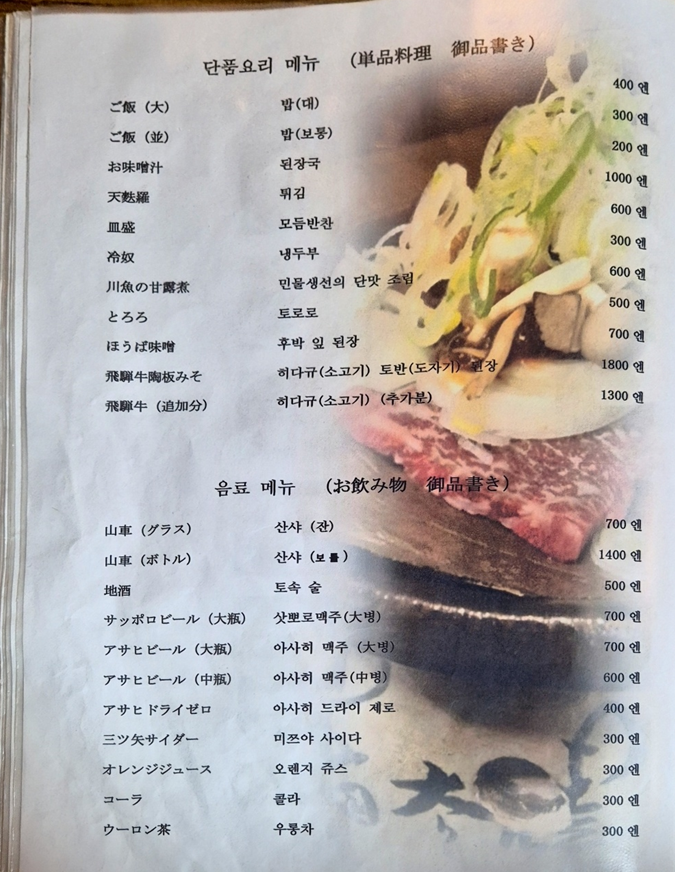 단품요리 메뉴 (単品料理 御品書き)
ご飯 (大) 밥(대) 400 엔
ご飯 (並) 밥(보통) 300 엔
お味噌汁 된장국 200 엔
天麩羅 튀김 1000 엔
皿盛 모듬반찬 600 엔
冷奴 냉두부 300 엔
川魚の甘露煮 민물생선의 단맛 조림 600 엔
とろろ 토로로 500 엔
ほうば味噌 후박 잎 된장 700 엔
飛騨牛陶板みそ 히다규(소고기) 토반(도자기) 된장 1800 엔
飛騨牛 (追加分) 히다규(소고기) (추가분) 1300 엔
음료 메뉴 (お飲み物 御品書き)
山車 (グラス) 산샤 (잔) 700 엔
山車 (ボトル) 산샤 (보틀) 1400 엔
地酒 토속 술 500 엔
サッポロビール (大瓶) 삿뽀로맥주(大병) 700 엔
アサヒビール (大瓶) 아사히 맥주 (大병) 700 엔
アサヒビール (中瓶) 아사히 맥주(中병) 600 엔
アサヒドライゼロ 아사히 드라이 제로 400 엔
三ツ矢サイダー 미쯔야 사이다 300 엔
オレンジジュース 오렌지 쥬스 300 엔
コーラ 콜라 300 엔
ウーロン茶 우롱차 300 엔